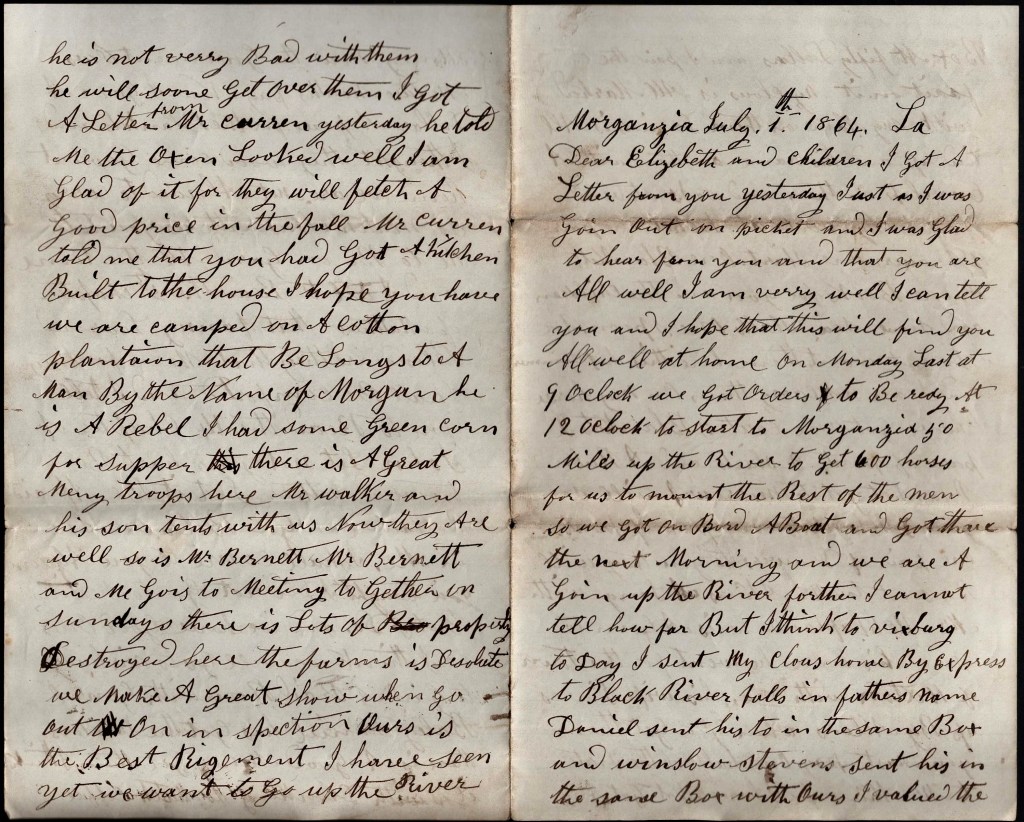 Morganzia July. 1.th 1864. La
Dear Elizebeth and children I Got A
Letter from you yesterday Just as I was
Goin Out on picket and I was Glad
to hear from you and that you are
All well I am verry well I can tell
you and I hope that this will find you
All well at home On Monday Last at
9 Oclock we Got Orders to Be redy At
12 Oclock to start to Morganzia 50
Miles up the River to Get 600 horses
for us to mount the Rest of the men
so we Got On Bord A Boat and Got thare
the next Morning and we are A
Goin up the River forther I cannot
tell how far But I think to vixburg
to Day I sent My Cloas home By Express
to Black River falls in fathers Name
Daniel sent his to in the same Box
and winslow stevens sent his in
the same Box with Ours I valued the
he is not verry Bad with them
he will soone Get Over them I Got
A Letter from Mr Curren yesterday he told
Me the Oxen Looked well I am
Glad of it for they will fetch A
Good price in the fall Mr Curren
told me that you had Got A kitchen
Built to the house I hope you have
we are camped on A cotton
plantaion that Be Longs to A
Man By the Name of Morgan he
is A Rebel I had some Green corn
for supper there is A Great
Meny troops here Mr walker and
his son tents with us Now they Are
well so is Mr Bernett Mr Bernett
and Me Gois to Meeting to Gether on
sundays there is Lots Of property
Destroyed here the farms is Desolate
we Make A Great show when Go
out On in spection Ours is
the Best Rigement I have seen
yet we want to Go up the River